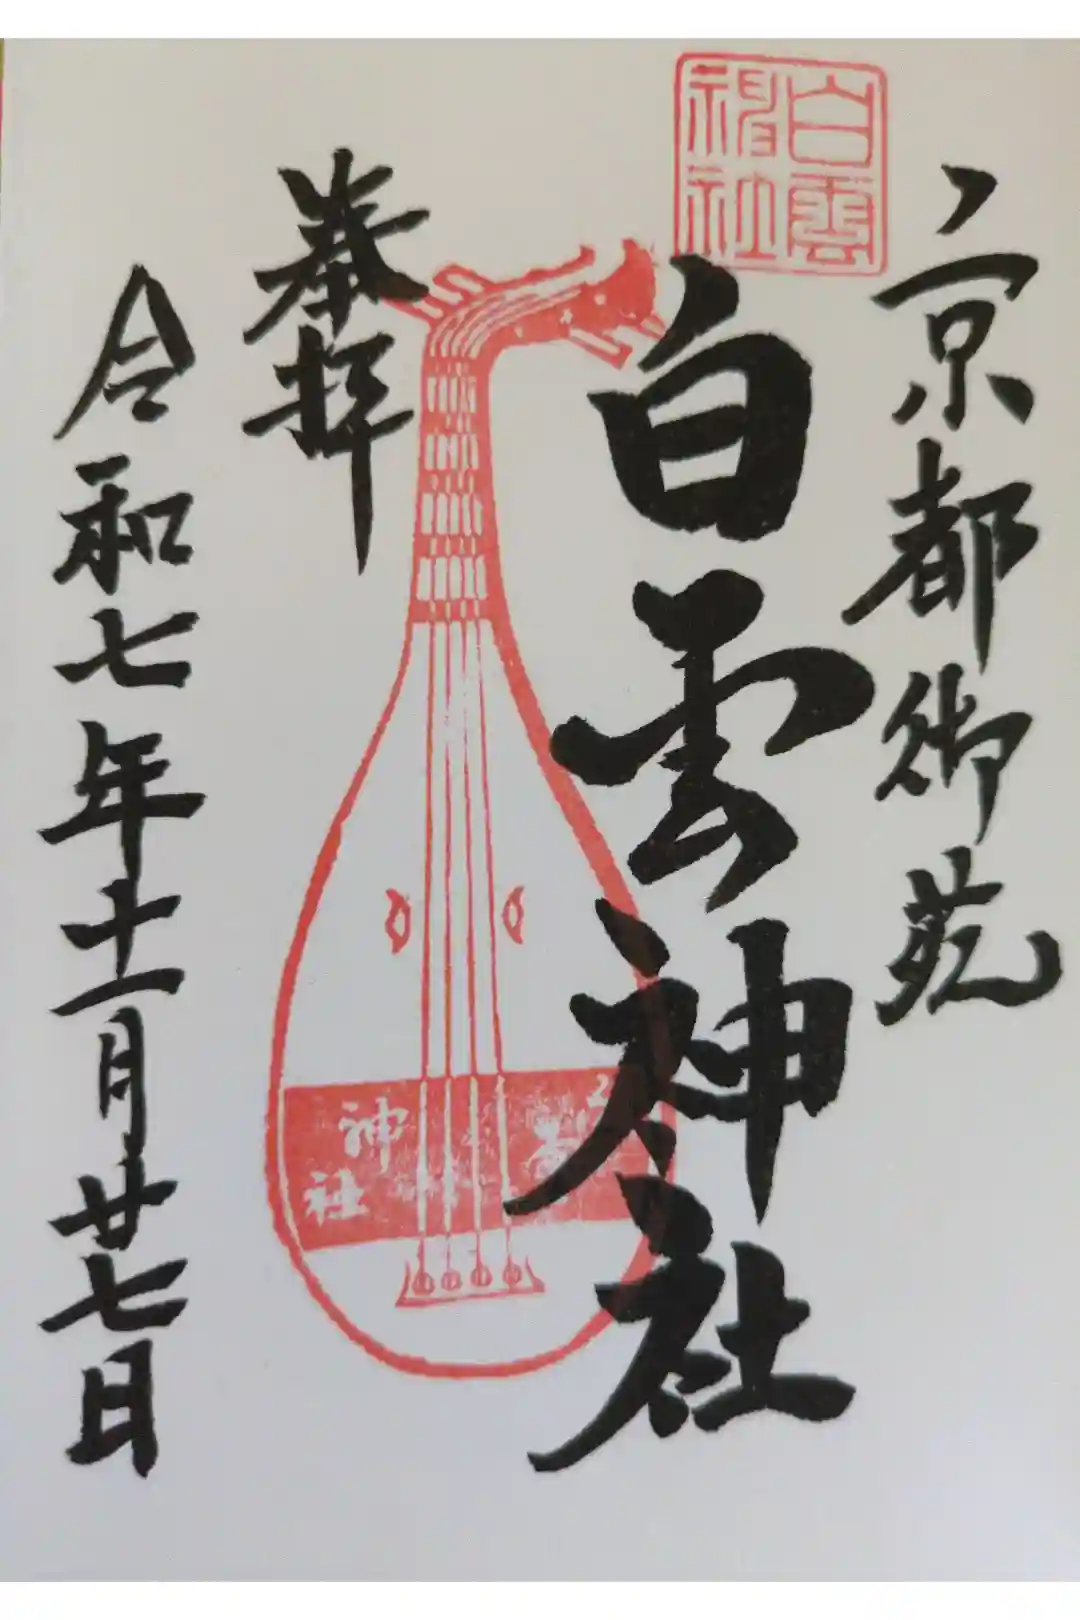 京都御苑
白雲神社
白雲神社
奉拝
神社
令和七年十一月廿七日